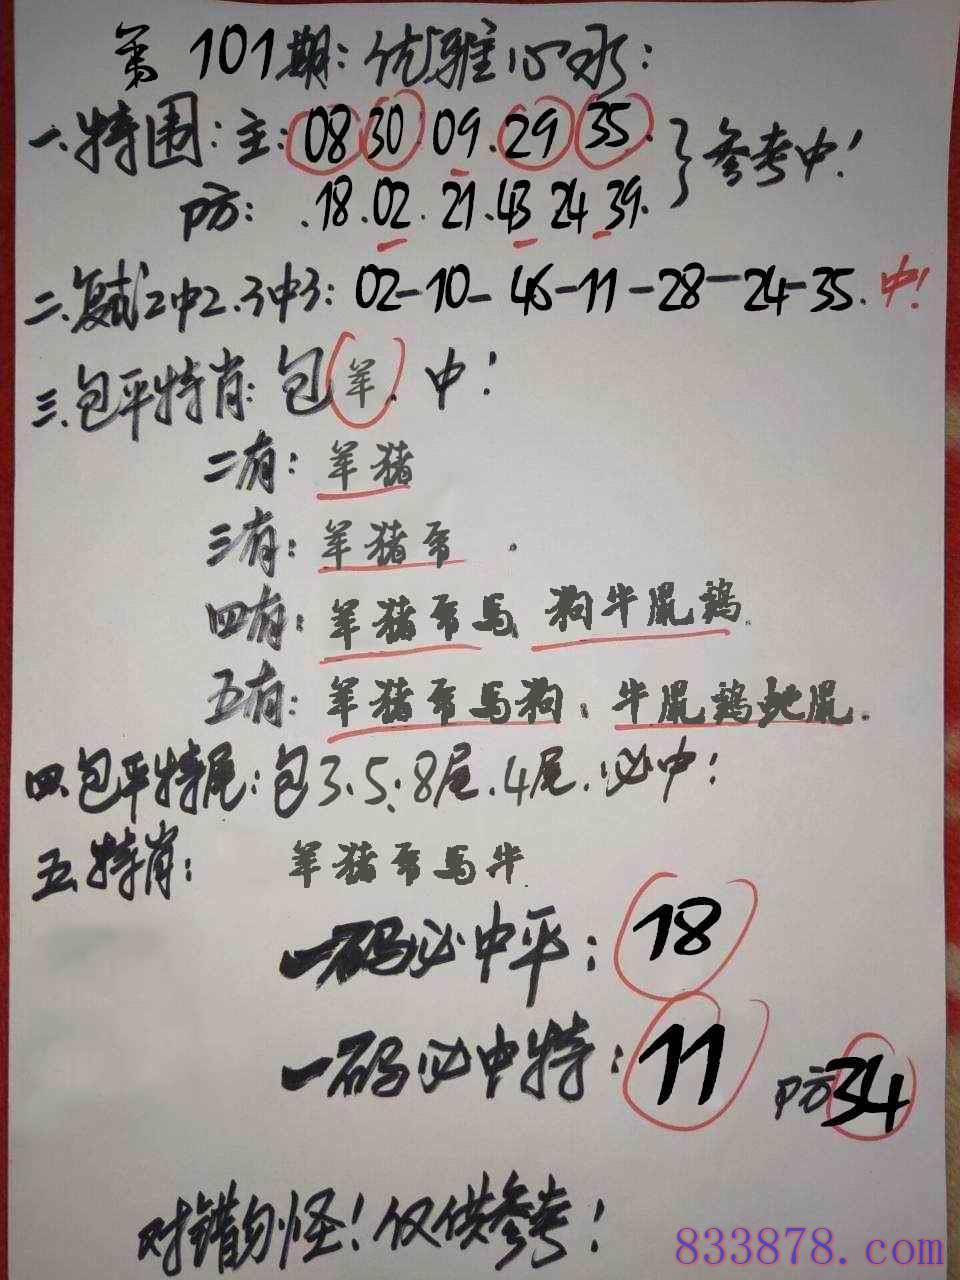 第101期：优雅心水：
一.特围：主：08 30 09.29 35.
参考中！
防：.18.02.21.43 24 39.
二.复式2中2.3中3：02-10-46-11-28-24-35.中！
三.包平特肖：包羊.中！
二有：羊猪
三有：羊猪
四有：羊猪 马 狗牛鼠鸡.
五有：羊猪 马狗：牛鼠鸡蛇鼠.
四.包平特尾：包3.5：8尾.4尾.必中！
五.特肖：羊猪 马牛
一码必中平：18
一码必中特：11 防34
对错勿怪！仅供参考！
833878.com